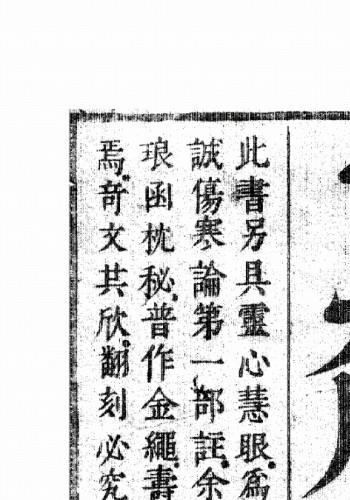 此書另具靈心慧眼爲
誠傷寒論第一部註余
琅函枕秘普作金繩壽
焉奇文共欣翻刻必究